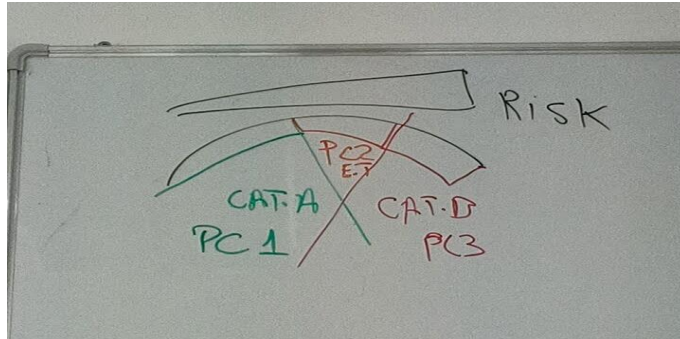 RiSK
PC2
E.T
CAT.A
PC1
CAT.B
PC3